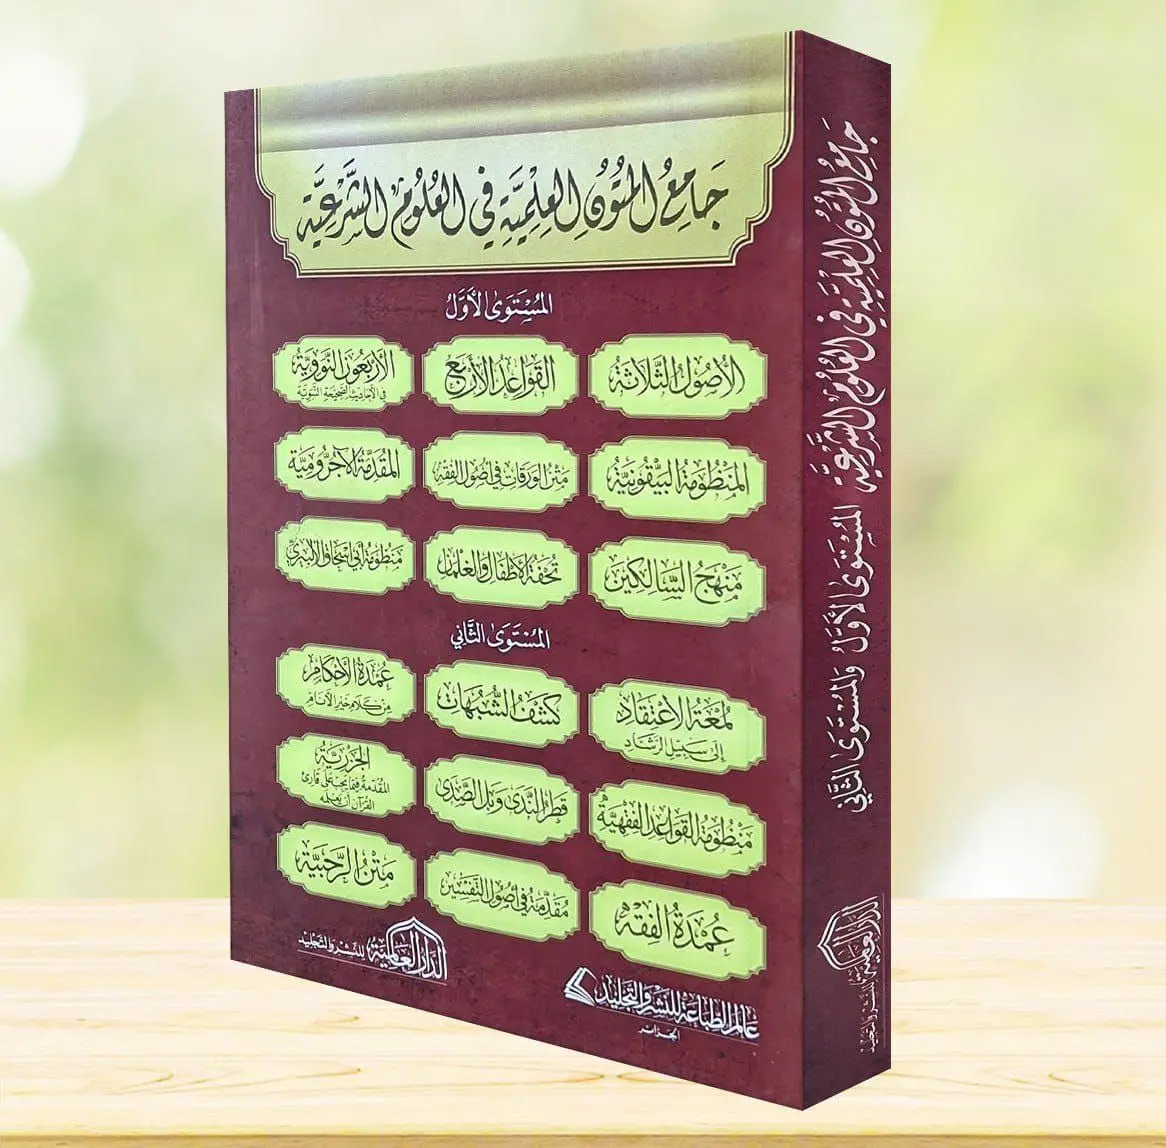 جَامِعُ المُتُونِ العِلْمِيَّةِ فِي العُلُومِ الشَّرْعِيَّةِ
المُسْتَوَى الأَوَّلُ
الأُصُولُ الثَّلَاثَةُ
القَوَاعِدُ الأَرْبَعُ
الأَرْبَعُونَ النَّوَوِيَّةُ
فِي الأَحَادِيثِ الصَّحِيحَةِ النَّبَوِيَّةِ
المَنْظُومَةُ البَيْقُونِيَّةُ
مَتْنُ الوَرَقَاتِ فِي أُصُولِ الفِقْهِ
المُقَدِّمَةُ الآجُرُّومِيَّةُ
مَنْهَجُ السَّالِكِينَ
تُحْفَةُ الأَطْفَالِ وَالغِلْمَانِ
مَنْظُومَةُ أَبِي إِسْحَاقَ الأَلْبِيرِيِّ
المُسْتَوَى الثَّانِي
لُمْعَةُ الاِعْتِقَادِ
إِلَى سَبِيلِ الرَّشَادِ
كَشْفُ الشُّبُهَاتِ
عُمْدَةُ الأَحْكَامِ
مِنْ كَلَامِ خَيْرِ الأَنَامِ
مَنْظُومَةُ القَوَاعِدِ الفِقْهِيَّةِ
قَطْرُ النَّدَى وَبَلُّ الصَّدَى
الجَزَرِيَّةُ
المُقَدِّمَةُ فِيمَا يَجِبُ عَلَى قَارِئِ
القُرْآنِ أَنْ يَعْلَمَهُ
عُمْدَةُ الفِقْهِ
مُقَدِّمَةٌ فِي أُصُولِ التَّفْسِيرِ
مَتْنُ الرَّحَبِيَّةِ
الدَّارُ العَالَمِيَّةُ للنَّشْرِ والتَّجْلِيدِ
عالم الطباعة للنشر والتجليد
الجزائر
جَامِعُ المُتُونِ العِلْمِيَّةِ فِي العُلُومِ الشَّرْعِيَّةِ المُسْتَوَى الأَوَّلُ وَالمُسْتَوَى الثَّانِي
الدَّارُ العَالَمِيَّةُ للنَّشْرِ والتَّجْلِيدِ